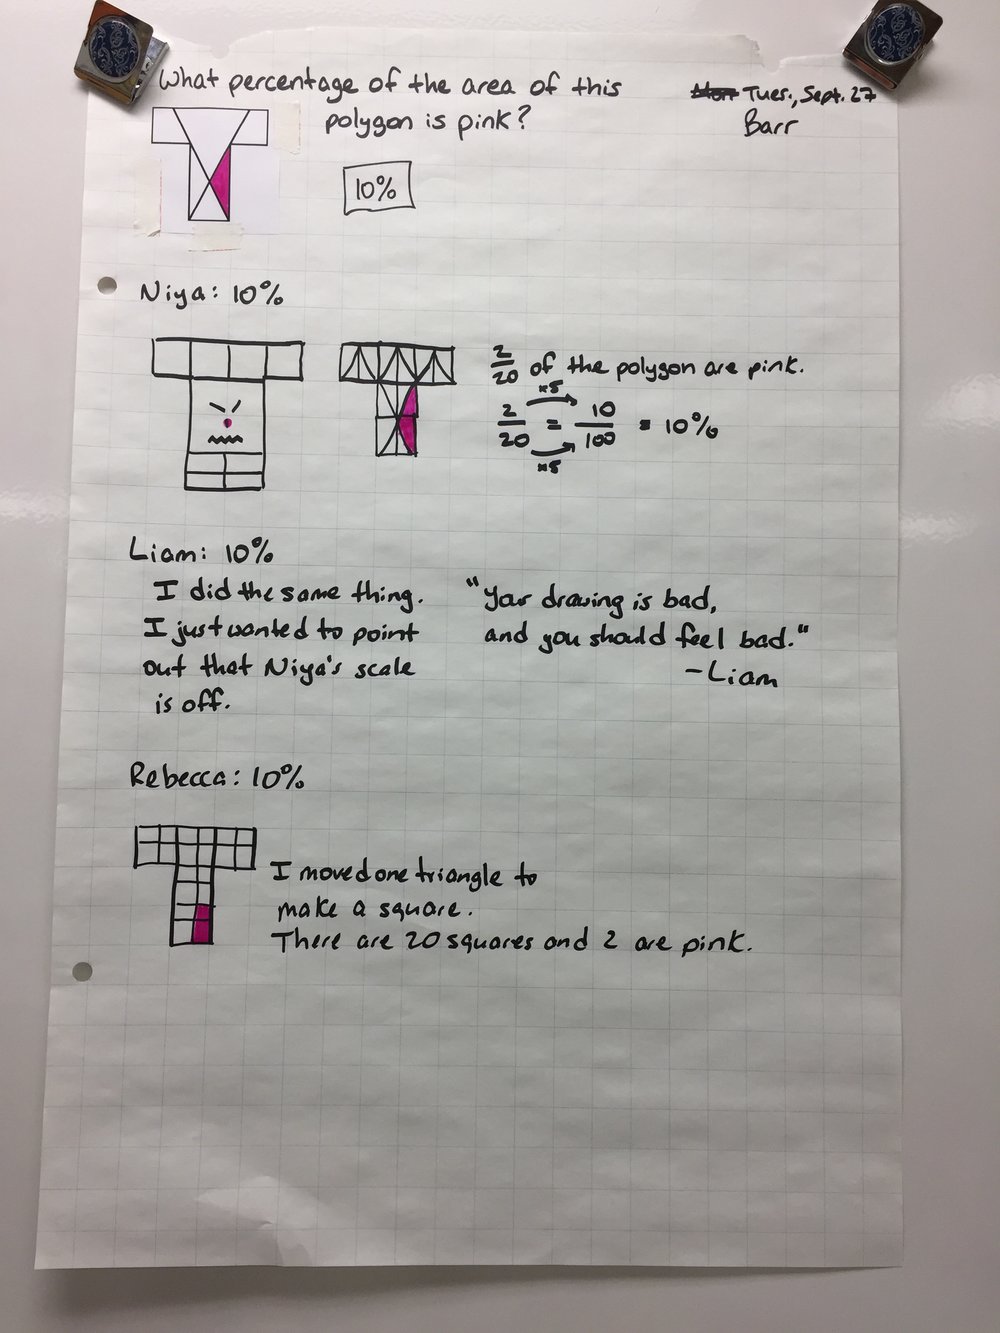 What percentage of the area of this
polygon is pink?
Tues., Sept. 27
Barr
10%
Niya: 10%
2/20 of the polygon are pink.
×5
2/20 = 10/100 = 10%
×5
Liam: 10%
I did the same thing.
I just wanted to point
out that Niya's scale
is off.
"Your drawing is bad,
and you should feel bad."
- Liam
Rebecca: 10%
I moved one triangle to
make a square.
There are 20 squares and 2 are pink.